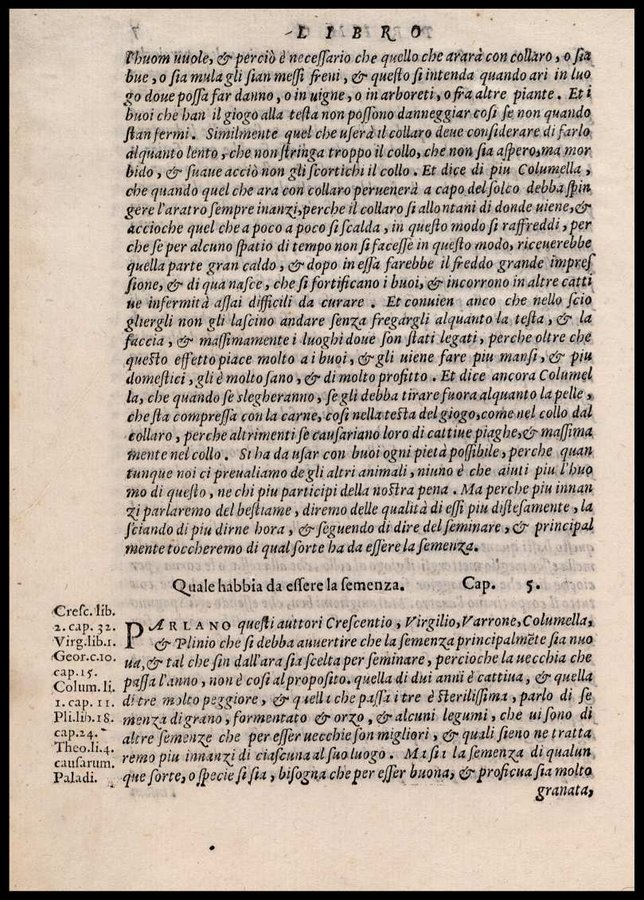 LIBRO
l'huom uuole, & perciò è necessario che quello che ararà con collaro, o sia
bue, o sia mula gli sian messi freni, & questo si intenda quando ari in luo
go doue possa far danno, o in uigne, o in arboreti, o fra altre piante. Et i
buoi che han il giogo alla testa non possono danneggiar cosi se non quando
stan fermi. Similmente quel che userà il collaro deue considerare di farlo
alquanto lento, che non stringa troppo il collo, che non sia aspero, ma mor
bido, & suaue acciò non gli scortichi il collo. Et dice di piu Columella,
che quando quel che ara con collaro peruenerà a capo del solco debba spin
gere l'aratro sempre inanzi, perche il collaro si allontani di donde uiene, &
accioche quel che a poco a poco si scalda, in questo modo si raffreddi, per
che se per alcuno spatio di tempo non si facesse in questo modo, riceuerebbe
quella parte gran caldo, & dopo in essa farebbe il freddo grande impres
sione, & di qua nasce, che si fortificano i buoi, & incorrono in altre catti
ue infermità assai difficili da curare. Et conuien anco che nello scio
gliergli non gli lascino andare senza fregargli alquanto la testa, & la
faccia, & massimamente i luoghi doue son stati legati, perche oltre che
questo effetto piace molto ai buoi, & gli uiene fare piu mansi, & piu
domestici, gli è molto sano, & di molto profitto. Et dice ancora Columel
la, che quando se slegheranno, se gli debba tirare fuora alquanto la pelle,
che sta compressa con la carne, cosi nella testa del giogo, come nel collo dal
collaro, perche altrimenti se causariano loro di cattiue piaghe, & massima
mente nel collo. Si ha da usar con buoi ogni pietà possibile, perche quan
tunque noi ci preualiamo degli altri animali, niuno è che aiuti piu l'huo
mo di questo, ne chi piu participi della nostra pena. Ma perche piu innan
zi parlaremo del bestiame, diremo delle qualità di essi piu distesamente, la
sciando di piu dirne hora, & seguendo di dire del seminare, & principal
mente toccheremo di qual sorte ha da essere la semenza.
Quale habbia da essere la semenza. Cap. 5.
Cresc. lib.
2. cap. 32.
Virg. lib. 1.
Geor. c. 10.
cap. 15.
Colum. li.
1. cap. 11.
Pli. lib. 18.
cap. 24.
Theo. li. 4.
causarum.
Paladi.
PARLANO questi auttori Crescentio, Virgilio, Varrone, Columella,
& Plinio che si debba auuertire che la semenza principalmẽte sia nuo
ua, & tal che sin dall'ara sia scelta per seminare, percioche la uecchia che
passa l'anno, non è cosi al proposito. quella di due anni è cattiua, & quella
di tre molto peggiore, & quella che passa i tre è sterilissima, parlo di se
menza di grano, formentato & orzo, & alcuni legumi, che ui sono di
altre semenze che per esser uecchie son migliori, & quali sieno ne tratta
remo piu innanzi di ciascuna al suo luogo. Ma sia la semenza di qualun
que sorte, o specie si sia, bisogna che per esser buona, & proficua sia molto
granata,